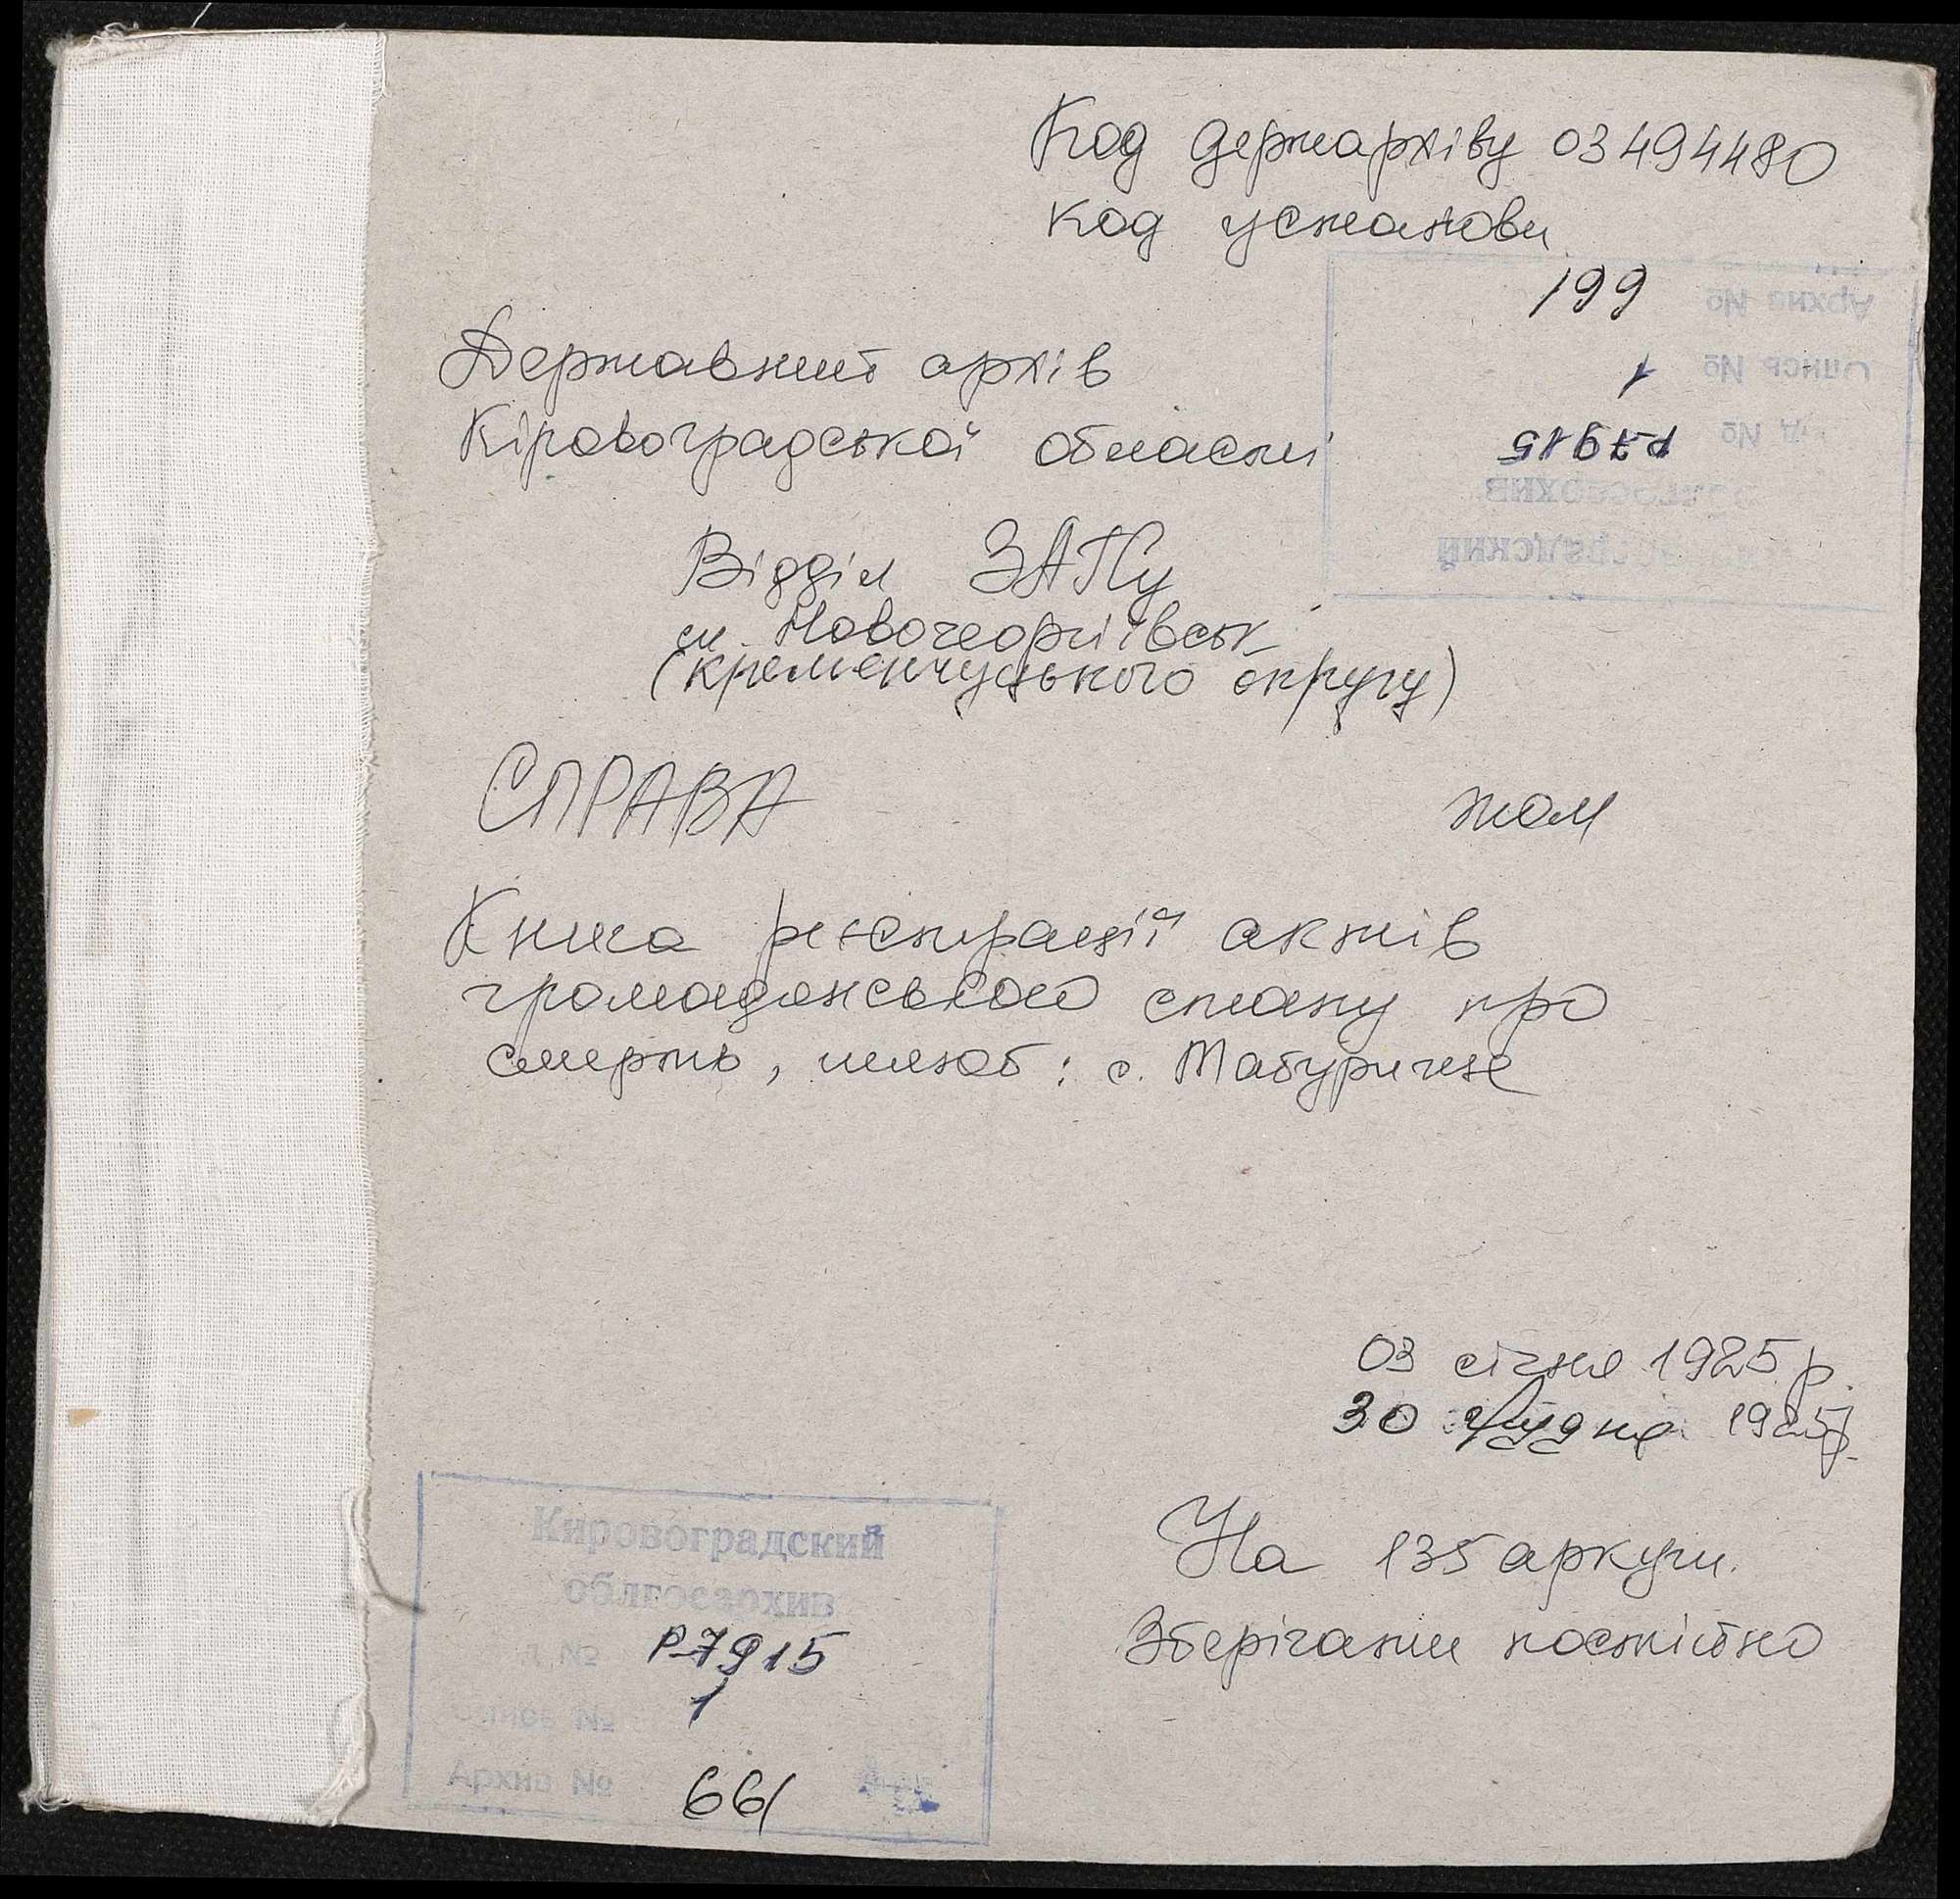 Код держархіву 03494480
код установи
199
Архив №
1
Опись №
Р-7915
Фонд №
облгосархив
Кировоградский
Державний архів
Кіровоградської області
Відділ ЗАГСу
м. Новогеоргіївськ
(кременчуцького округу)
СПРАВА том
Книга реєстрації актів
громадянського стану про
смерть, шлюб: с. Табурище
03 січня 1925 р.
30 грудня 1925 р.
На 135 аркуш.
Зберігати постійно
Кировоградский
облгосархив
д №
Р-7915
Опись №
1
Архив №
661